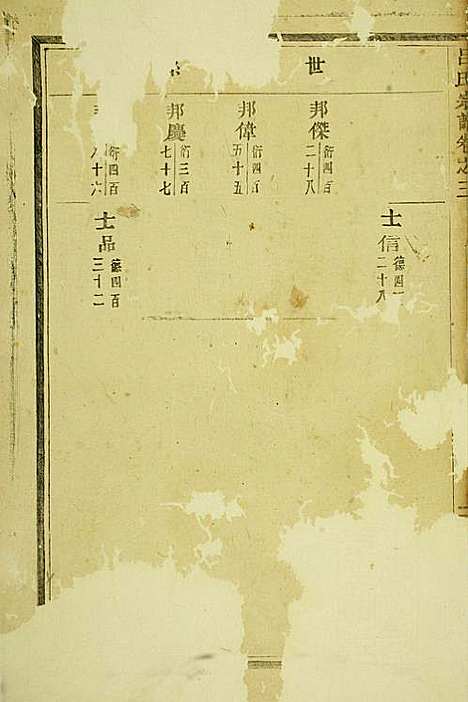 呂氏宗譜卷之三
世
邦傑 衍四百二十八
邦偉 衍四百五十五
邦慶 衍三百七十七
衍四百八十六
士信 德四二十八
士品 德四百三十二